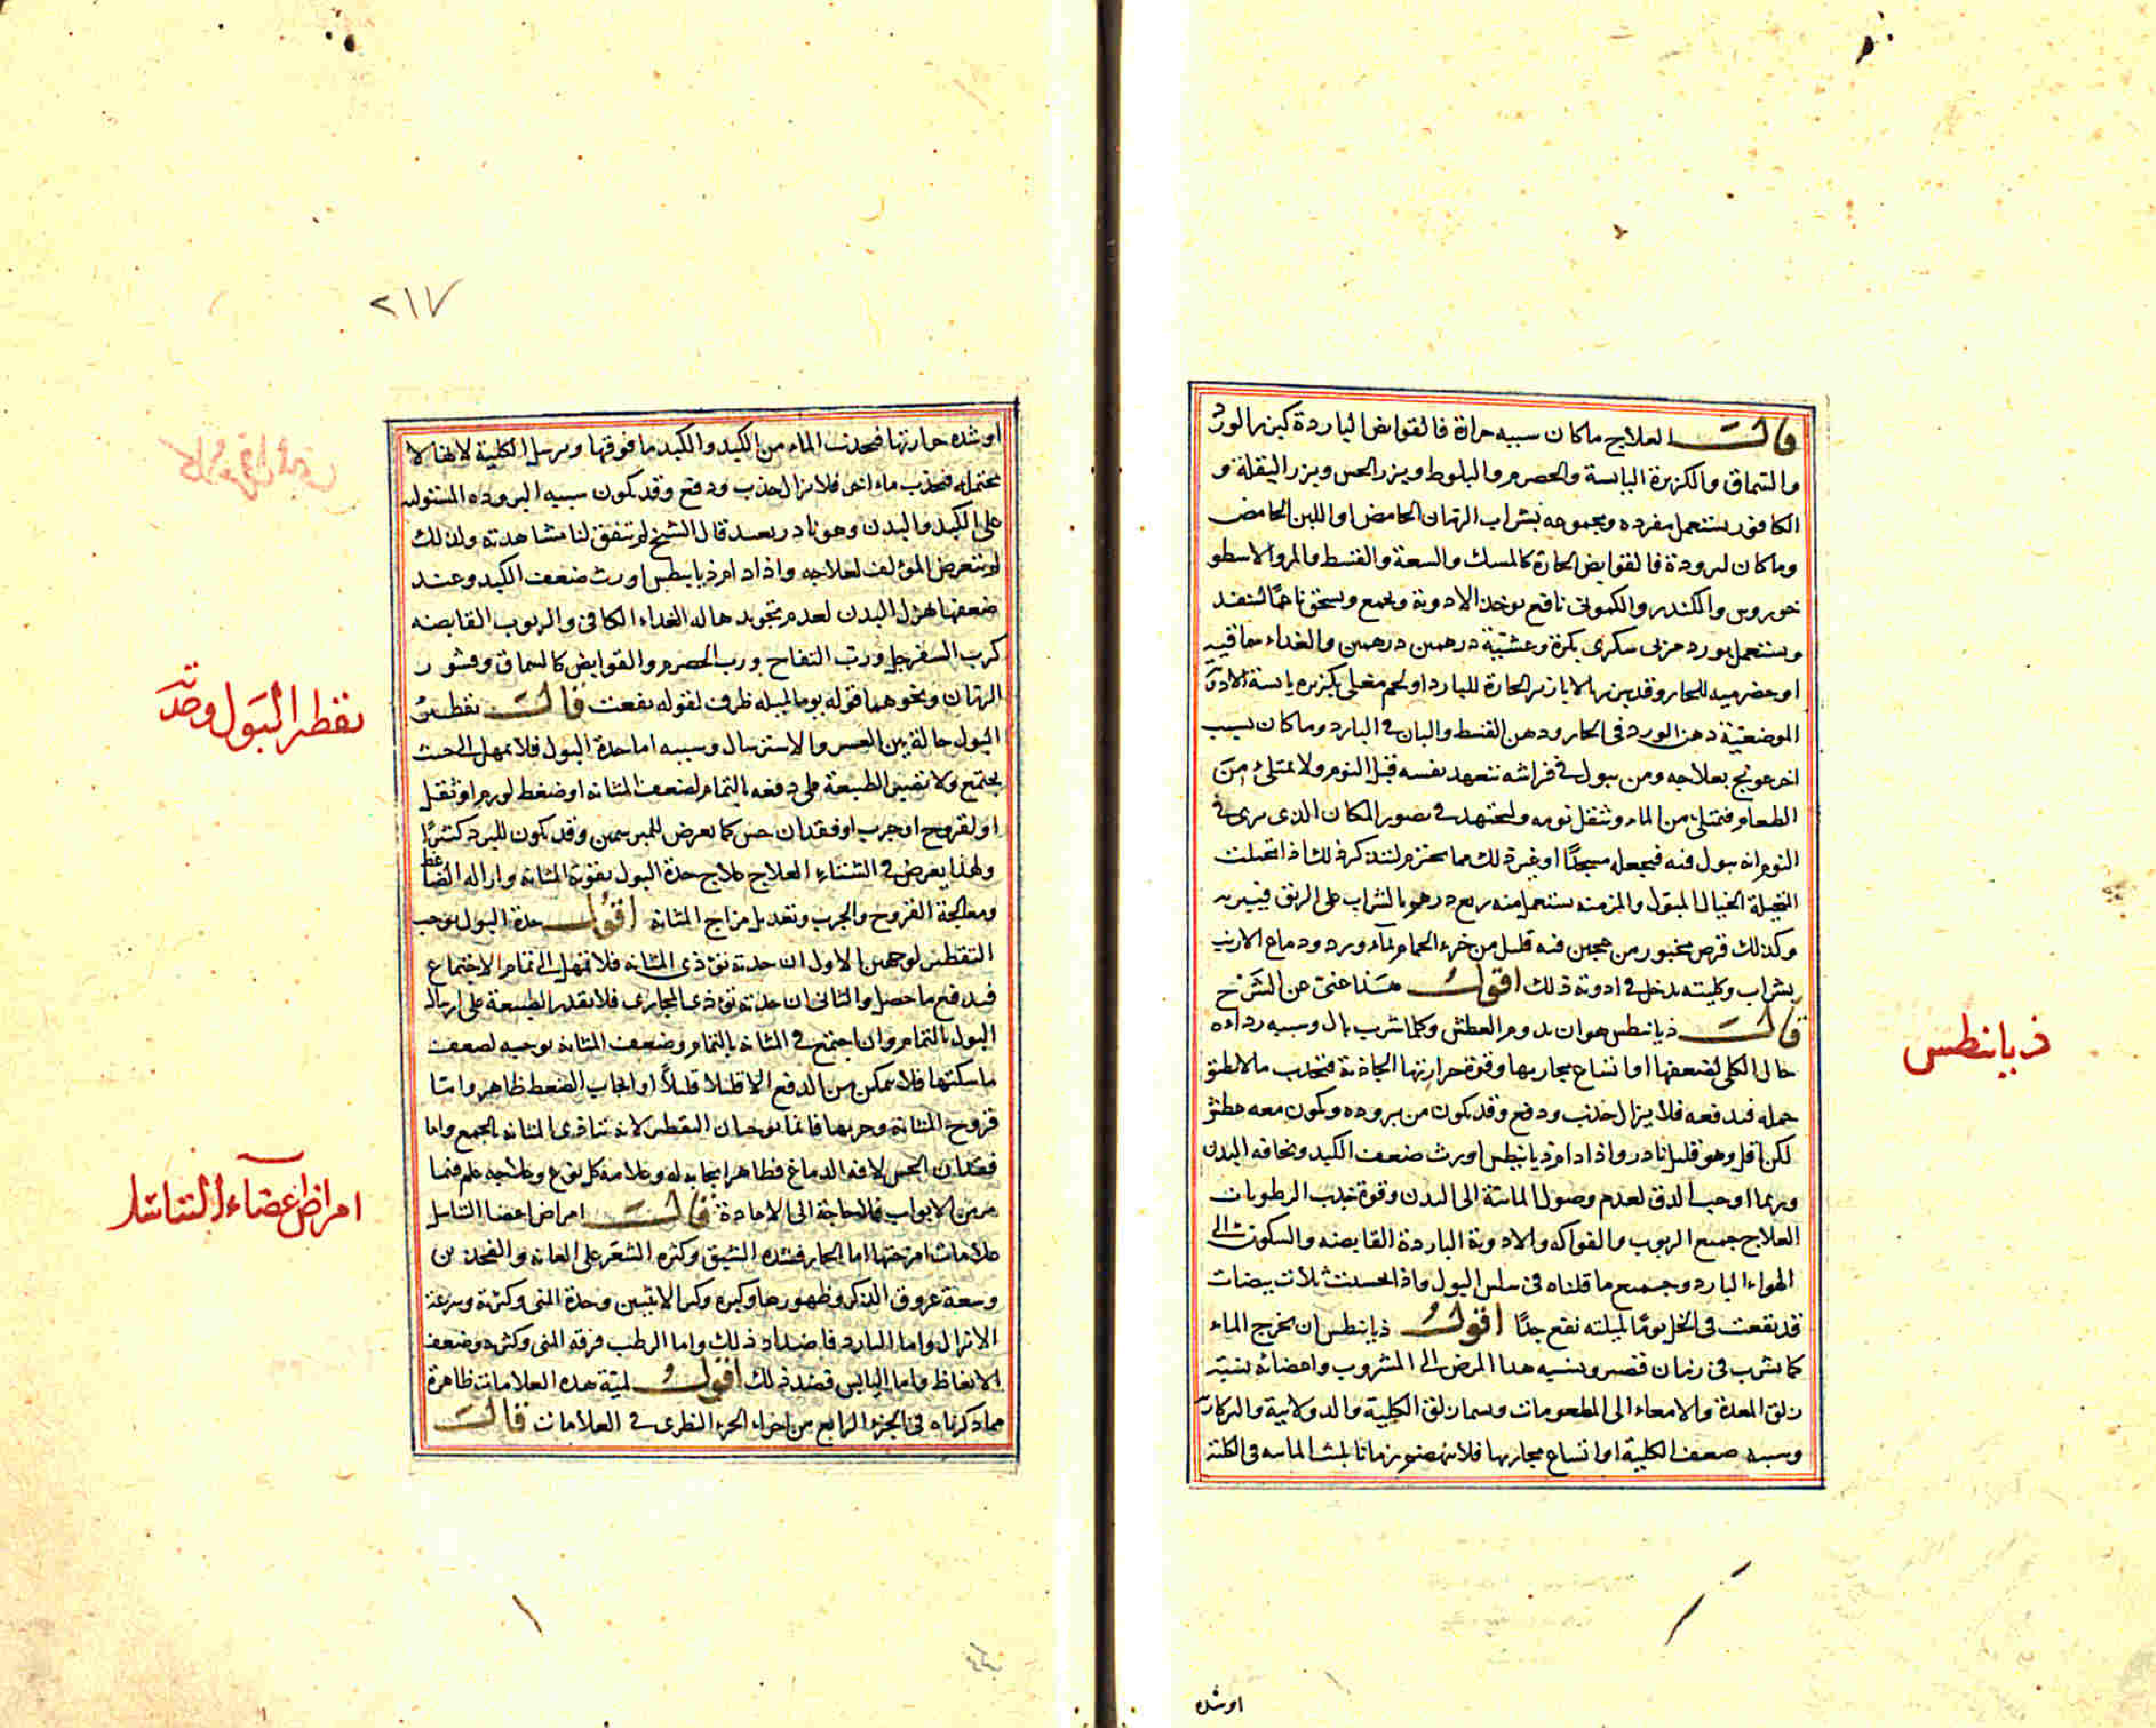 قالت العلاج ما كان سببه حرارة فالقوابض الباردة كبزر الورد
والسماق والكزبرة اليابسة والحصرم والبلوط وبزر الخس وبزر البقلة و
الكافور يستعمل مفرده ومجموعه بشراب الرمان الحامض او اللبن الحامض
وما كان لبرودة فالقوابض الحارة كالمسك والسعد والقسط والمر والاسطو
خودوس والكندر والكمونى نافع يوخذ الادوية ويجمع ويسحق ناعما
ويستعمل بورد مربى سكرى بكرة وعشية درهمين درهمين والغداء سماقيه
او حصرميه للحار وقد من الابازير الحارة للبارد او لحم مغلى بكزبره يابسة الادوية
الموضعية دهن الورد فى الحار ودهن القسط والبان فى البارد وما كان بسبب
اخر عولج بعلاجه ومن يبول فى فراشه يتعهد نفسه قبل النوم ولا يمتلئ من
الطعام فيمتلئ من الماء ويثقل نومه وليجتهد فى تصور المكان الذى يرى فى
النوم انه يبول فيه فيجعله مسجدا او غير ذلك مما يحترم ليتذكر ذلك اذا تخيلت
الخيال المبول والمزمنه يستعمل منه ربع درهم بالشراب على الريق
وكذلك قرص مخبوز من عجين فيه قليل من خرء الحمام بماء ورد ودماغ الارنب
بشراب وكليته يدخل فى ادوية ذلك اقول هذا غنى عن الشرح
قالت ذيابيطس هو ان يدوم العطش وكلما شرب بال وسببه رداءه
حال الكلى لضعفها او اتساع مجاريها وقوة حرارتها الجاذبة فتجذب ما لا تطيق
حمله فتدفعه فلا يزال جذب ودفع وقد يكون من بروده ويكون معه عطش
لكن اقل وهو قليل نادر واذا دام ذيابيطس اورث ضعف الكبد ونحافه البدن
وربما اوجب الدق لعدم وصول المائية الى البدن وقوة جذب الرطوبات
العلاج جميع الربوب والفواكه والادوية الباردة القابضه والسكون الى
الهواء البارد وجميع ما قلناه فى سلس البول واذا تحسيت ثلاث بيضات
قد نقعت فى الخل يوما لميلته نفع جدا اقول ذيابيطس ان يخرج الماء
كما يشرب فى زمان قصير ونسبه هذا المرض الى المشروب واعضائه نسبة
زلق المعدة والامعاء الى المطعومات ويسمى زلق الكلية والدولابية والبركارية
وسببه ضعف الكلية او اتساع مجاريها فلا زمانا يلبث المائيه فى الكلية
اوشده
ذيابيطس
٢١٧
او شده حرارتها فيجذب الماء من الكبد والكبد ما فوقها ويرسل الكلية لانها لا
تحتمله فتجذب ماء اخر فلا يزال جذب ودفع وقد يكون سببه البروده المستوليه
على الكبد والبدن وهو نادر بعيد قال الشيخ لم يتفق لنا مشاهدته ولذلك
لم يتعرض المؤلف لعلاجه واذا دام ذيابيطس اورث ضعف الكبد وعند
ضعفها هزل البدن لعدم تجويدها له الغداء الكافى والربوب القابضه
كرب السفرجل ورب التفاح ورب الحصرم والقوابض كالسماق وقشور
الرمان ونحوهما قوله يوما لميله ظرف لقوله نقعت قالت تقطير
البول حالة بين العسر والاسترسال وسببه اما حدة البول فلا يمهل الى حيث
يجتمع ولا تفيض الطبيعة على دفعه بالتمام لضعف المثانه او ضغط لورم او ثقل
او لقروح او جرب او فقدان حس كما يعرض للمبرسمين وقد يكون للبرد كثيرا
ولهذا يعرض فى الشتاء العلاج علاج حدة البول تقوية المثانه وازاله الضاغط
ومعالجة القروح والجرب وتعديل مزاج المثانه اقول حدة البول يوجب
التقطير لوجهين الاول ان حدته تؤذى المثانه فلا تمهل الى تمام الاجتماع
فيدفع ما حصل والثانى ان حدته تؤذى المجارى فلا تقدر الطبيعة على ارسال
البول بالتمام وان اجتمع فى المثانه بالتمام وضعف المثانه يوجبه لضعف
ماسكتها فلا يمكن من الدفع الا قليلا قليلا او ايجاب الضغط ظاهر واما
قروح المثانة وجربها فانما يوجبان التقطير لانه يتاذى المثانه بالجمع واما
فقدان الحس لافه الدماغ فظاهر ايجابه له وعلامة كل نوع وعلاجه علم فيما
مر من الابواب فلا حاجة الى الاعادة قالت امراض اعضاء التناسل
علامات امزجتها اما الحار فشده الشبق وكثره الشعر على العانه والفخذين
وسعة عروق الذكر وظهورها وكبره وكبر الانثيين وحدة المنى وكثرته وسرعة
الانزال واما البارد فاضداد ذلك واما الرطب فرقه المنى وكثرته وضعف
الانعاظ واما اليابس فضد ذلك اقول لمية هذه العلامات ظاهرة
مما ذكرناه فى الجزء الرابع من اجزاء الجزء النظرى فى العلامات قالت
تقطير البول وحدته
امراض اعضاء التناسل